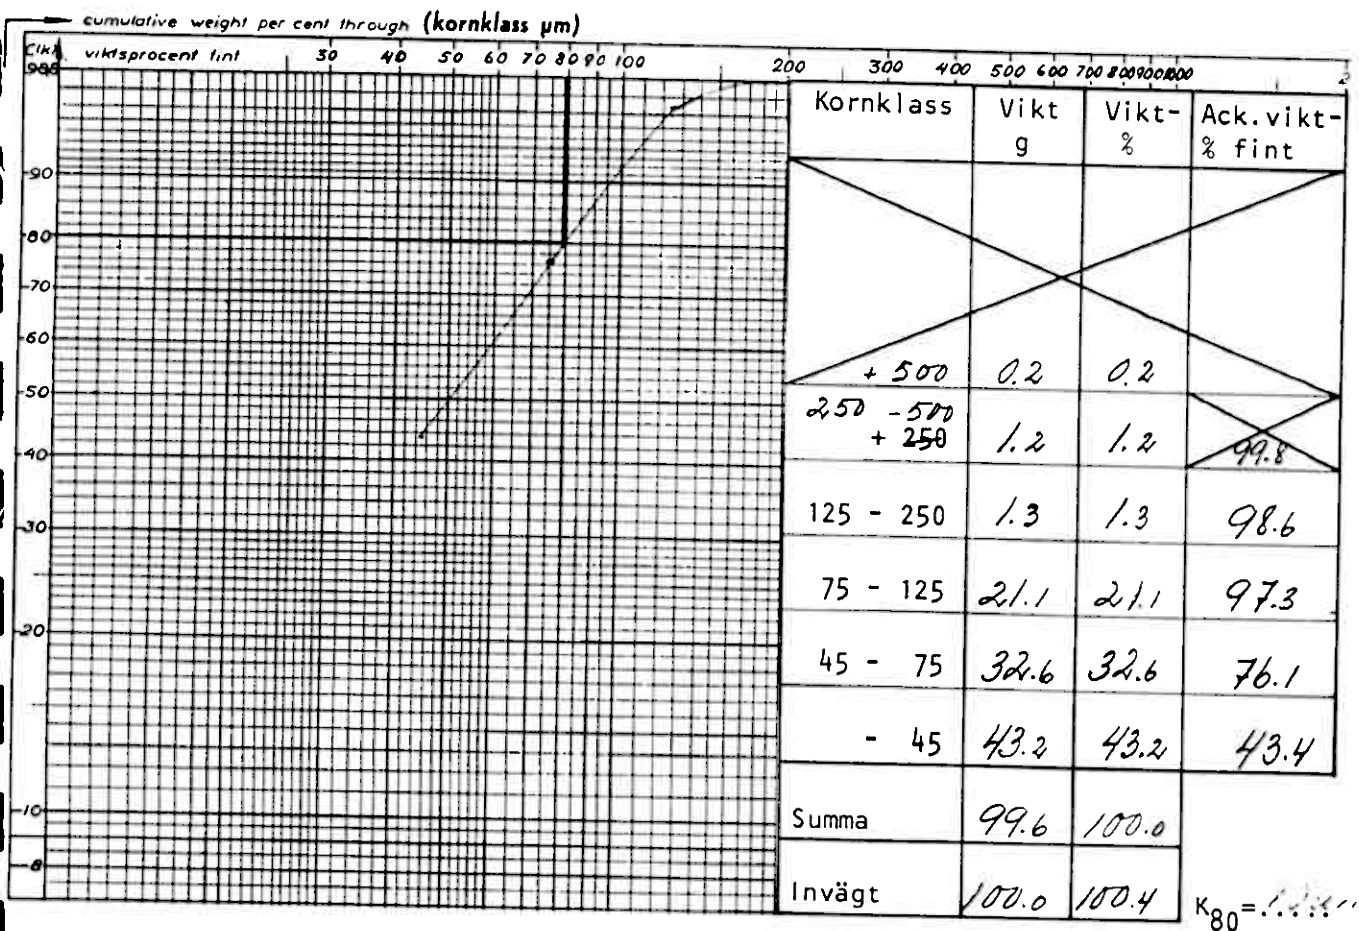 cumulative weight per cent through (kornklass µm)
viktsprocent fint 30 40 50 60 70 80 90 100 200 300 400 500 600 700 800 900 1000 2
90
80
70
60
50
40
30
20
10
8
Kornklass Vikt g Vikt-% Ack.vikt-% fint
+ 500 0.2 0.2
250 - 500
+ 250 1.2 1.2 99.8
125 - 250 1.3 1.3 98.6
75 - 125 21.1 21.1 97.3
45 - 75 32.6 32.6 76.1
- 45 43.2 43.2 43.4
Summa 99.6 100.0
Invägt 100.0 100.4
K80=